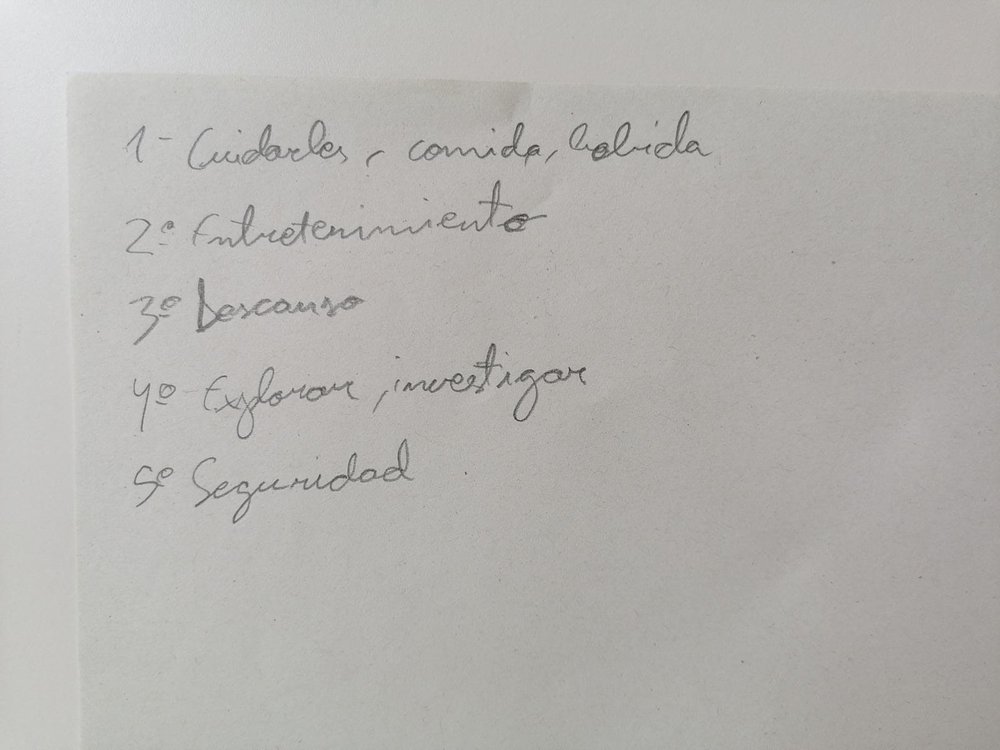 1- Cuidarles, comida, bebida
2º Entretenimiento
3º Descanso
4º Explorar, investigar
5º Seguridad